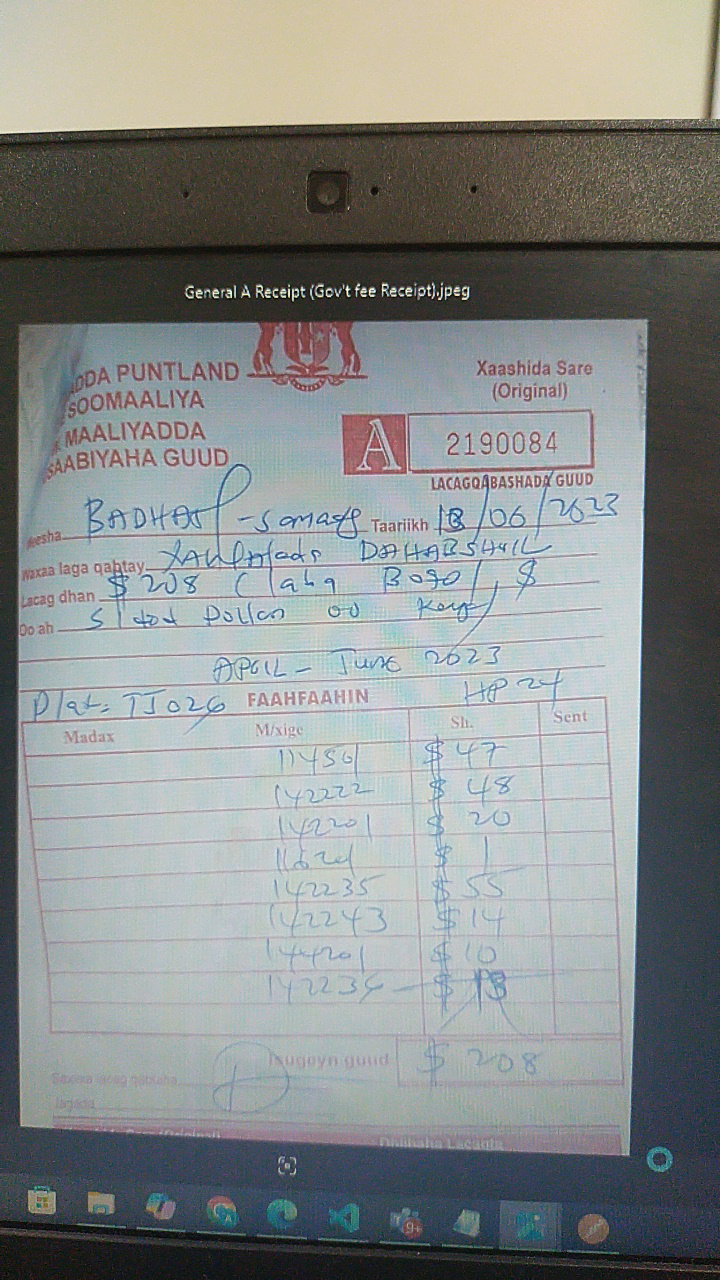 General A Receipt (Gov't fee Receipt).jpeg
ADDA PUNTLAND
SOOMAALIYA
MAALIYADDA
SAABIYAHA GUUD
Xaashida Sare
(Original)
A 2190084
LACAGQABASHADA GUUD
Meesha BADHAN - Sanaag Taariikh 13/06/2023
Waxaa laga qabtay DAHABSHIIL
Lacag dhan $ 208 ( Laba Boqol, $
Oo ah Sideed Dollar oo Keq
APRIL - June 2023
Plat: TJ026 FAAHFAAHIN HP 24
Madax M/xige Sh. Sent
11456 $ 47
142222 $ 48
142201 $ 20
$ 1
142235 $ 55
142243 $ 14
144201 $ 10
142236 $ 13
Isugeyn guud $ 208
Saxiixa lacag qabtaha
9+